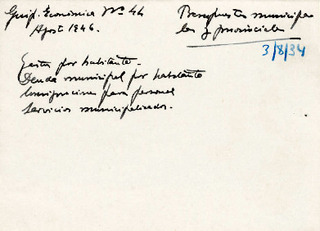 Guip. Económica Nº 44
Agosto 1946.
Presupuestos municipa
les y provinciales
3/8/34
Gastos por habitante.-
Deuda municipal por habitante
Consignaciones para personal
Servicios municipalizados.